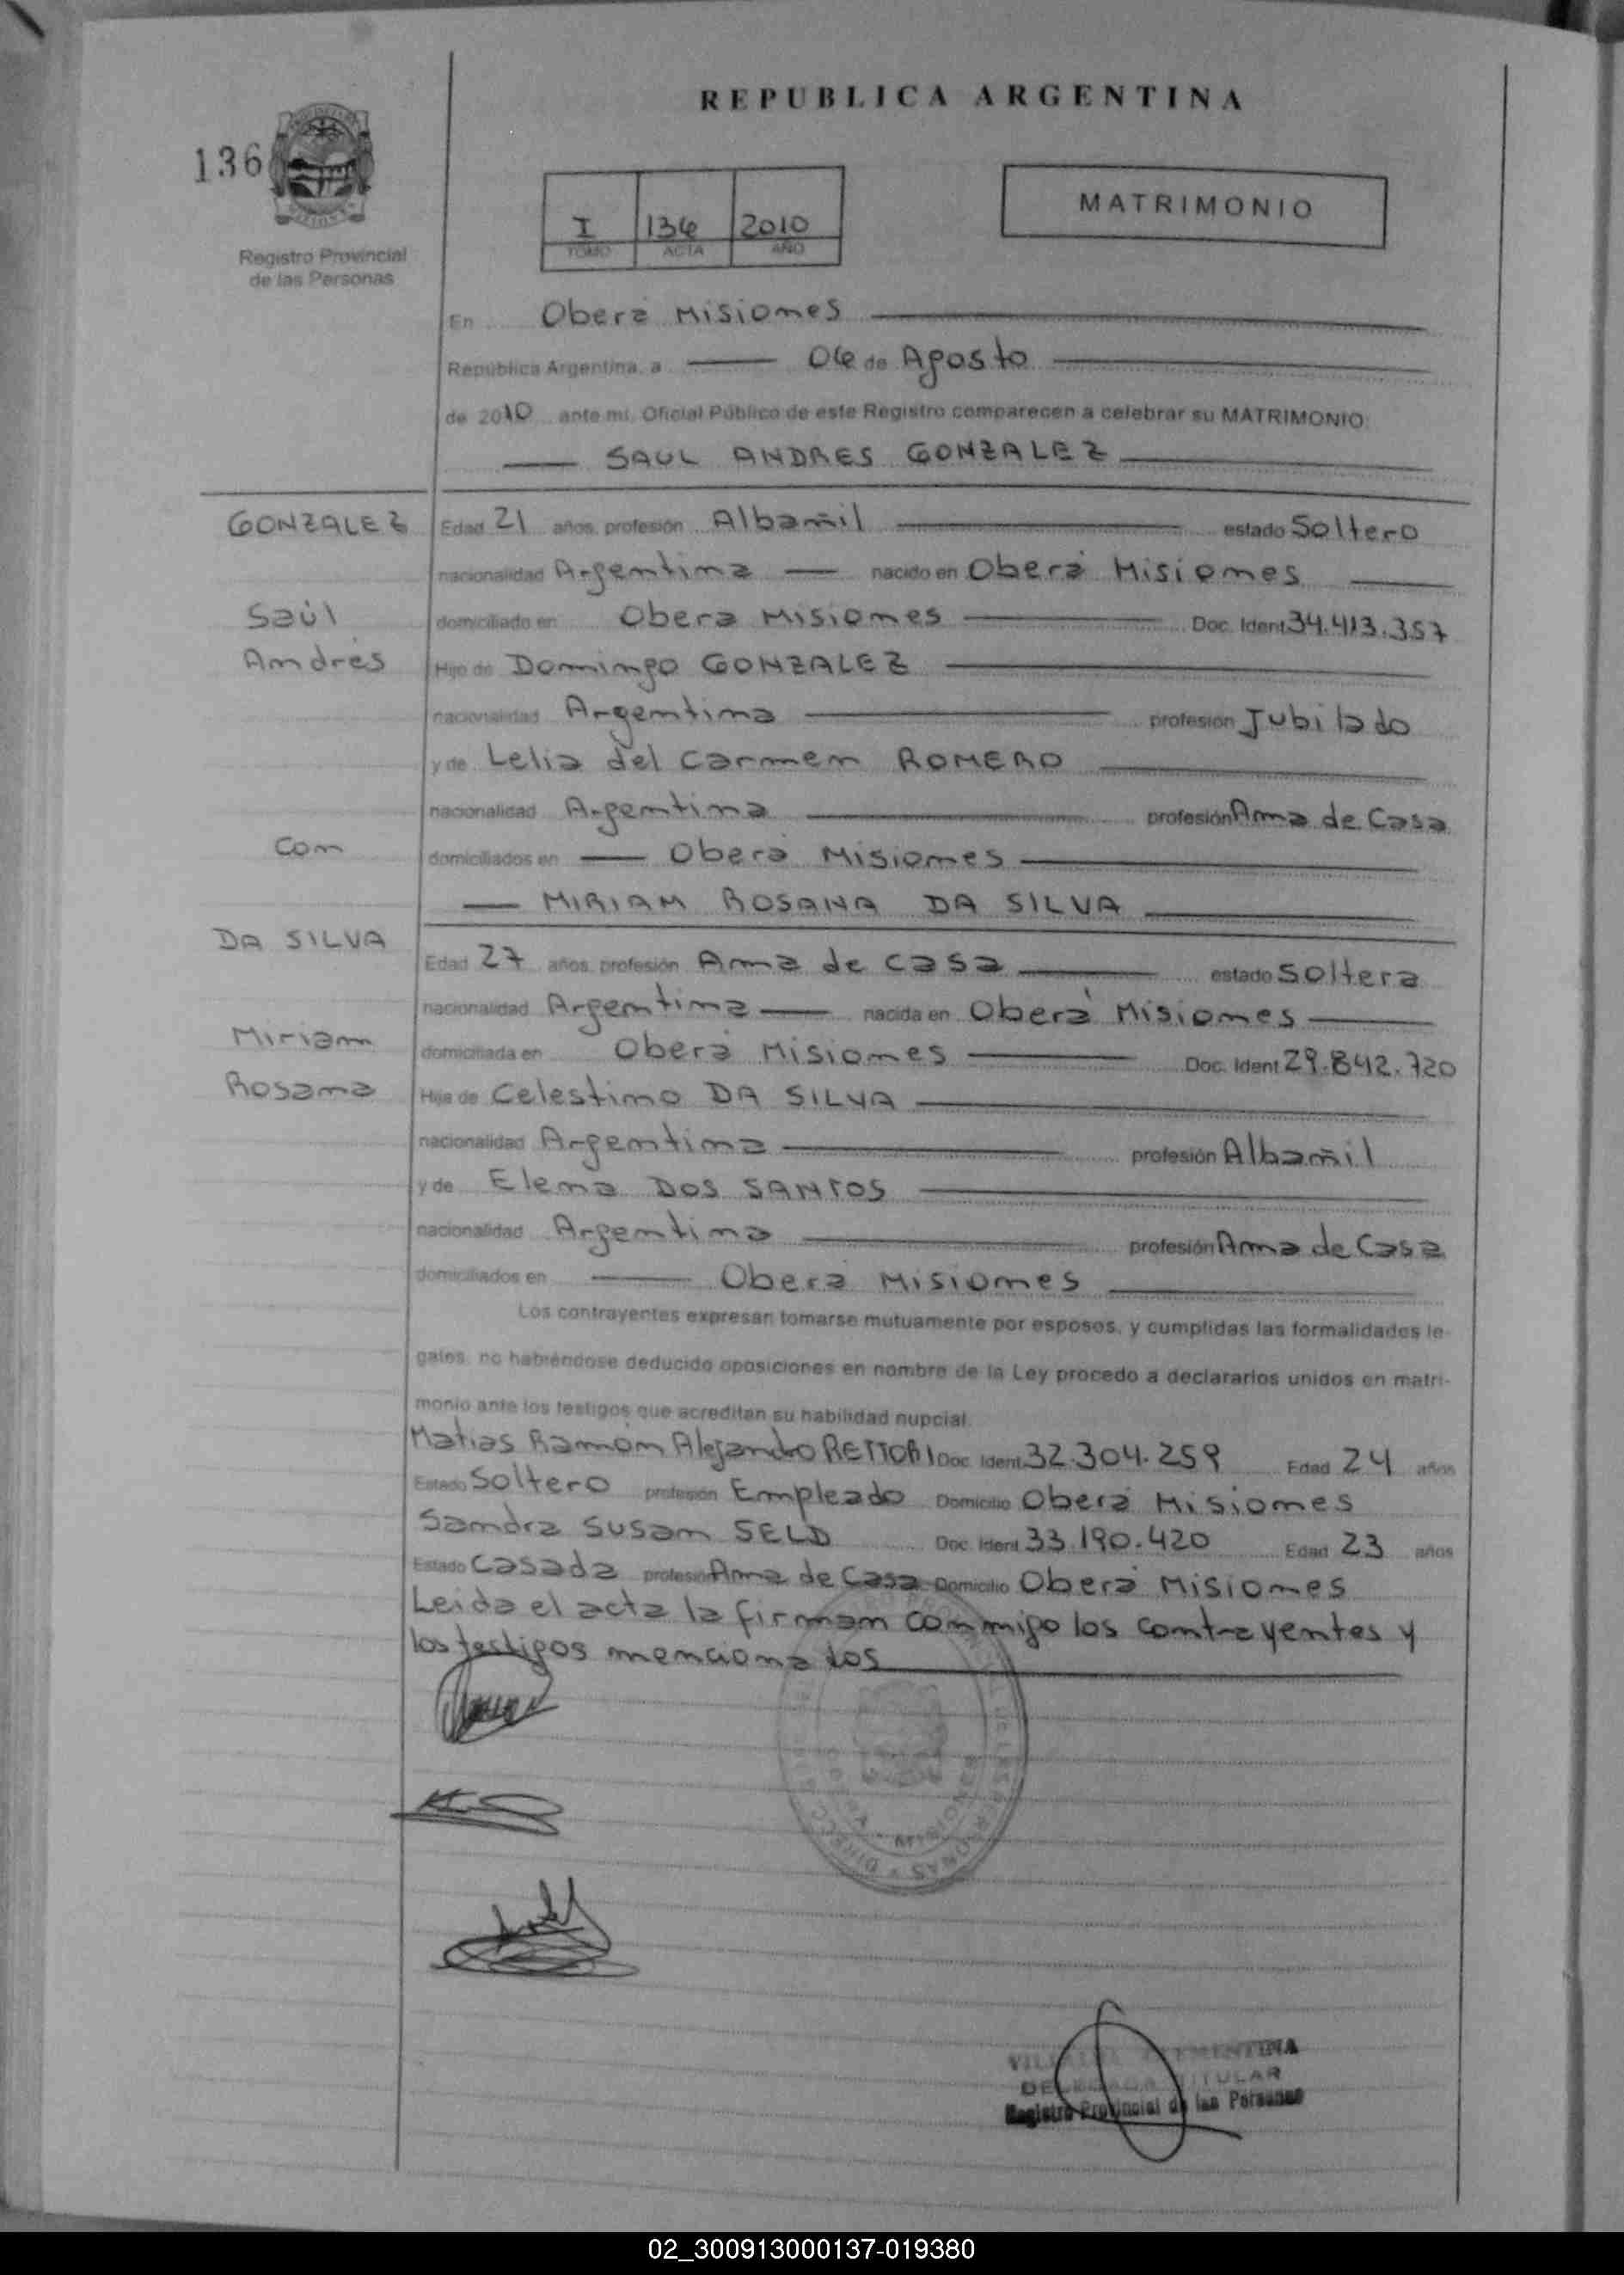 REPUBLICA ARGENTINA
136
Registro Provincial
de las Personas
I 136 2010
TOMO ACTA AÑO
MATRIMONIO
En Oberá Misiones
República Argentina, a 06 de Agosto
de 2010 ante mí, Oficial Público de este Registro comparecen a celebrar su MATRIMONIO:
SAUL ANDRES GONZALEZ
GONZALEZ
Edad 21 años, profesión Albañil estado Soltero
nacionalidad Argentina nacido en Oberá Misiones
Saúl
domiciliado en Oberá Misiones Doc. Ident 34.413.357
Andrés
Hijo de Domingo GONZALEZ
nacionalidad Argentina profesión Jubilado
y de Lelia del Carmen ROMERO
nacionalidad Argentina profesión Ama de Casa
Con
domiciliados en Oberá Misiones
MIRIAM ROSANA DA SILVA
DA SILVA
Edad 27 años, profesión Ama de casa estado Soltera
nacionalidad Argentina nacida en Oberá Misiones
Miriam
domiciliada en Oberá Misiones Doc. Ident 29.842.720
Rosana
Hija de Celestino DA SILVA
nacionalidad Argentina profesión Albañil
y de Elena DOS SANTOS
nacionalidad Argentina profesión Ama de Casa
domiciliados en Oberá Misiones
Los contrayentes expresan tomarse mutuamente por esposos, y cumplidas las formalidades le-
gales, no habiéndose deducido oposiciones en nombre de la Ley procedo a declararlos unidos en matri-
monio ante los testigos que acreditan su habilidad nupcial.
Matias Ramón Alejandro RETTORI Doc. Ident. 32.304.259 Edad 24 años
Estado Soltero profesión Empleado Domicilio Oberá Misiones
Sandra Susan SELD Doc. Ident 33.190.420 Edad 23 años
Estado Casada profesión Ama de Casa Domicilio Oberá Misiones
Leida el acta la firman conmigo los contrayentes y
los testigos mencionados
DELEGADA TITULAR
Registro Provincial de las Personas
02_300913000137-019380